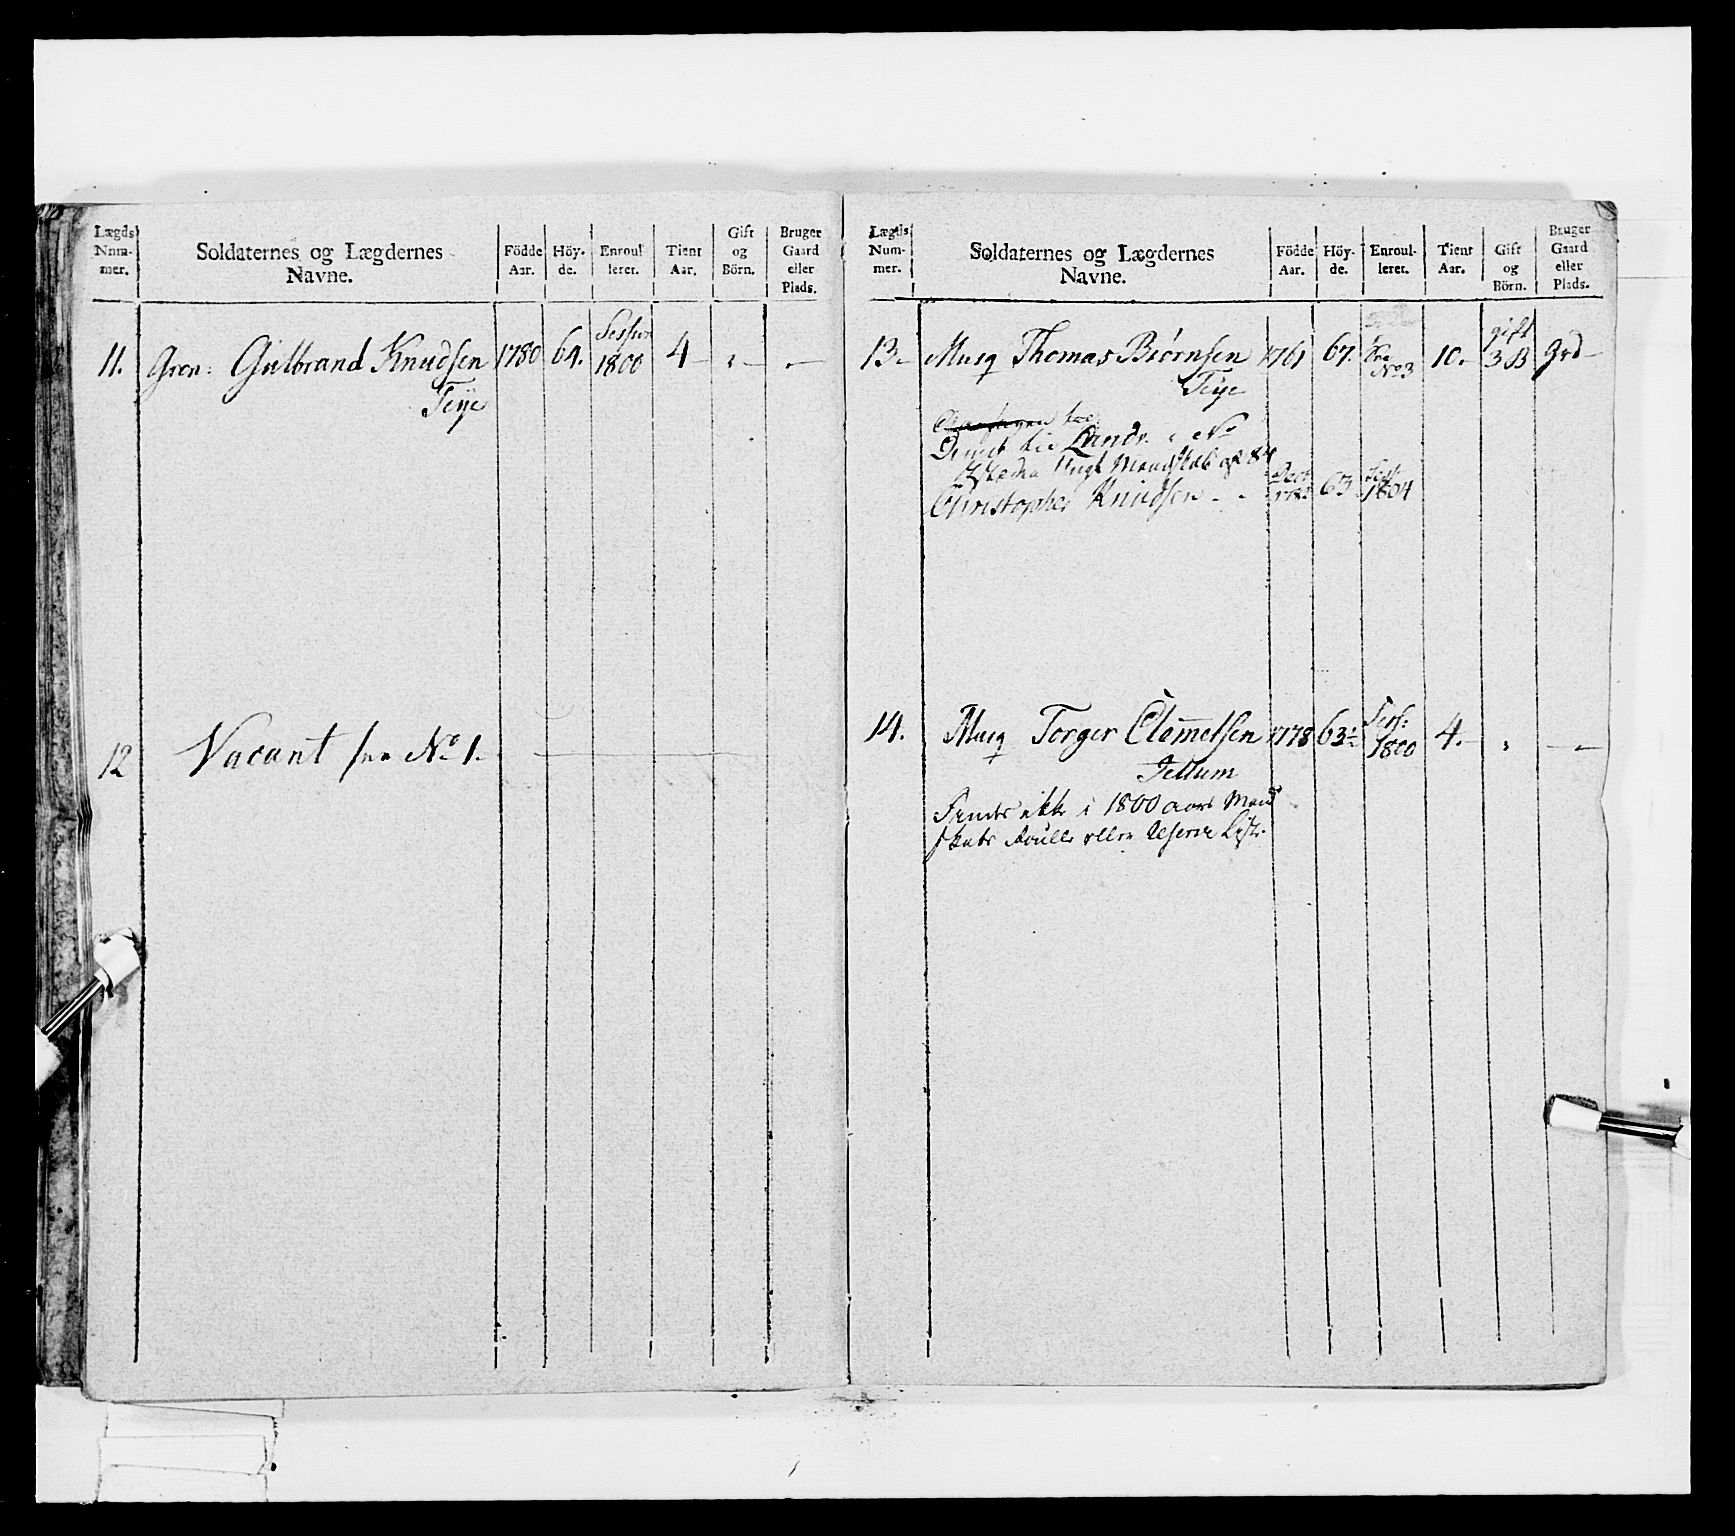 Lægds Num-mer. Soldaternes og Lægdernes Navne. Födde Aar. Höy-de. Enroul-leret. Tient Aar. Gift og Börn. Bruger Gaard eller Plads.
11. Gren: Gulbrand Knudsen 1780 64. Session 1800 4 –
Teije
12 Vacant fra No 1.
Lægds Num-mer. Soldaternes og Lægdernes Navne. Födde Aar. Höy-de. Enroul-leret. Tient Aar. Gift og Börn. Bruger Gaard eller Plads.
13. Musq Thomas Biørnsen 1761 67. fra No 3 10. gift 3 B Grd –
Teije
Landv. No
Mandskab 84
Christopher Knudsen 63 Sess: 1804
14. Musq Torger Clemetsen 1778 63 1/2 Sess: 1800 4. –
Jellum
Findes ikke i 1800 aars Mand
skabs Roulle eller Reserve Liste.